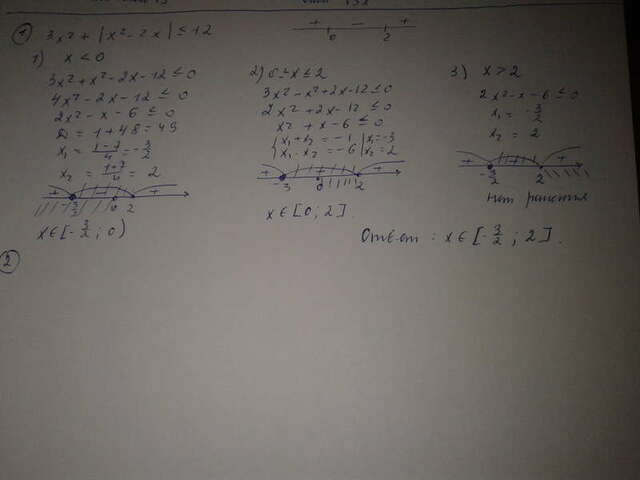 ① 3x² + |x² - 2x| ≤ 12
+ - +
0 2
1) x < 0
3x² + x² - 2x - 12 ≤ 0
4x² - 2x - 12 ≤ 0
2x² - x - 6 ≤ 0
D = 1 + 48 = 49
x₁ = (1-7)/4 = -3/2
x₂ = (1+7)/4 = 2
+ - +
-3/2 0 2
x ∈ [-3/2; 0)
2) 0 ≤ x ≤ 2
3x² - x² + 2x - 12 ≤ 0
2x² + 2x - 12 ≤ 0
x² + x - 6 ≤ 0
{ x₁ + x₂ = -1 | x₁ = -3
x₁ · x₂ = -6 | x₂ = 2
+ - +
-3 0 2
x ∈ [0; 2].
3) x > 2
2x² - x - 6 ≤ 0
x₁ = -3/2
x₂ = 2
+ - +
-3/2 2
нет решения
Ответ: x ∈ [-3/2; 2].
②